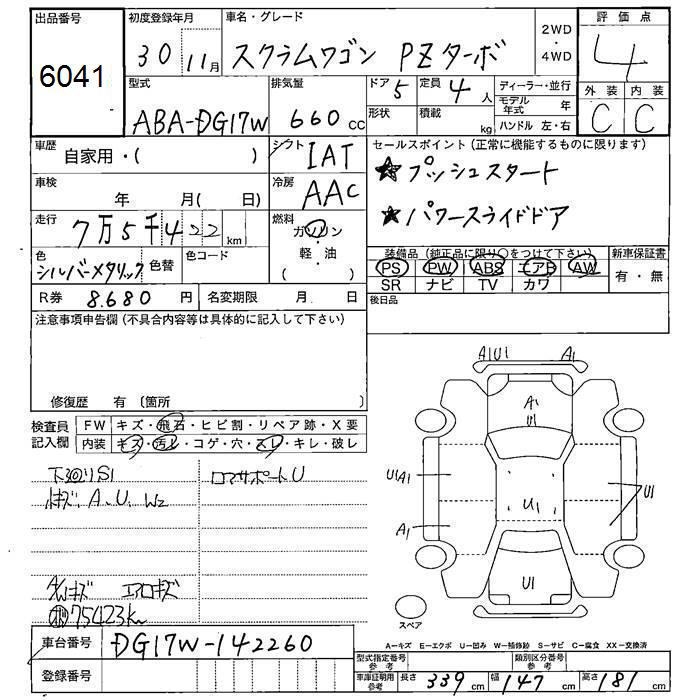 出品番号
6041
初度登録年月
30 11月
車名・グレード
スクラムワゴン PZターボ
2WD
・
4WD
評価点
4
外装 内装
C C
型式
ABA-DG17W
排気量
660 cc
ドア 5
形状
定員 4 人
積載 kg
ディーラー・並行
モデル年式 年
ハンドル 左・右
車歴
自家用・( )
シフト
IAT
車検
年 月( 日)
冷房
AAC
走行
7万5千422 km
燃料
ガソリン
軽・油
( )
色
シルバーメタリック
色替
色コード
R券 8.680 円
名変期限 月 日
セールスポイント(正常に機能するものに限ります)
★ プッシュスタート
★ パワースライドドア
装備品(純正品に限り○をつけて下さい)
PS PW ABS エアB AW
SR ナビ TV カワ
新車保証書
有・無
後日品
注意事項申告欄(不具合内容等は具体的に記入して下さい)
修復歴 有(箇所 )
検査員
記入欄
FW キズ・飛石・ヒビ割・リペア跡・X要
内装 キズ・汚レ・コゲ・穴・スレ・キレ・破レ
下廻りS1
小キズ、A、U、W2
コアサポートU
エアロキズ
75423km
A1U1 A1
A1
U1
U1A1
U1
U1
A1
U1
スペア
A-キズ E-エクボ U-凹み W-補修跡 S-サビ C-腐食 XX-交換済
車台番号 DG17W-142260
登録番号
型式指定番号
参考
類別区分番号
参考
車庫証明用
参考
長さ 339 cm 幅 147 cm 高さ 181 cm